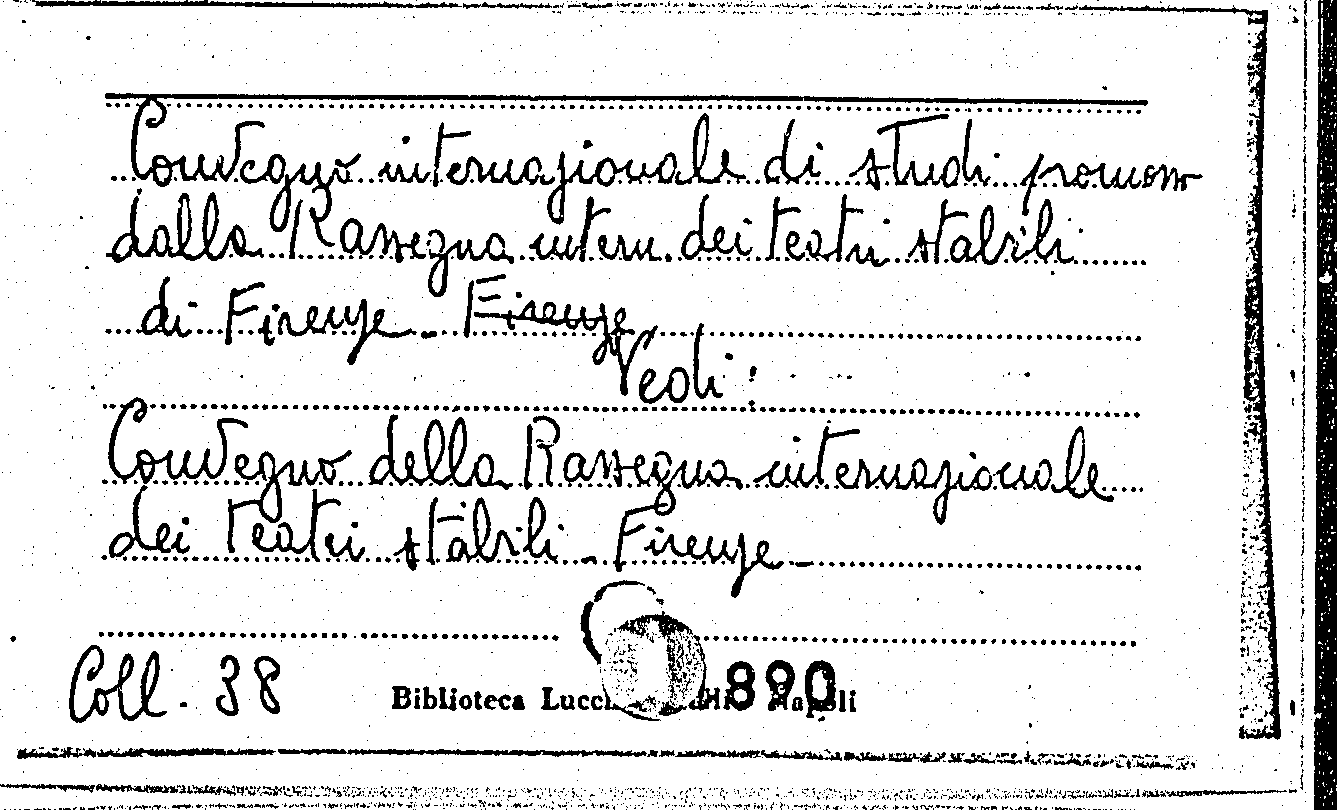 Convegno internazionale di studi promosso
dalla Rassegna intern. dei teatri stabili
di Firenze - Firenze
Vedi:
Convegno della Rassegna internazionale
dei teatri stabili - Firenze -
Coll. 38
Biblioteca 890 Napoli